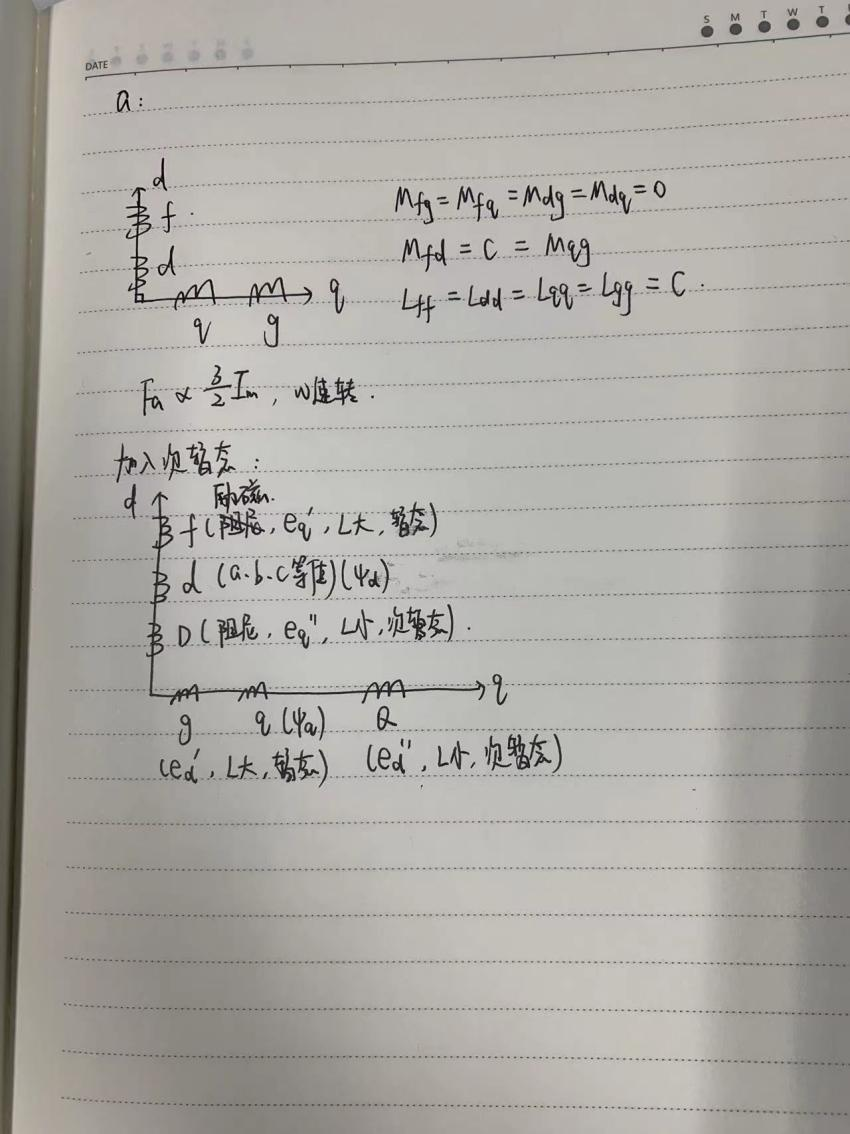 S M T W T
DATE
a:
d
f
d
q
q g
Mfg = Mfq = Mdg = Mdq = 0
Mfd = C = Mqg
Lff = Ldd = Lqq = Lgg = C.
Fa ∝ 3/2 Im, w速转.
加入次暂态:
d
励磁
f (阻尼, eq', L大, 暂态)
d (a.b.c等值) (ψd)
D (阻尼, eq'', L小, 次暂态).
q
g q (ψq) Q
(ed', L大, 暂态) (ed'', L小, 次暂态)